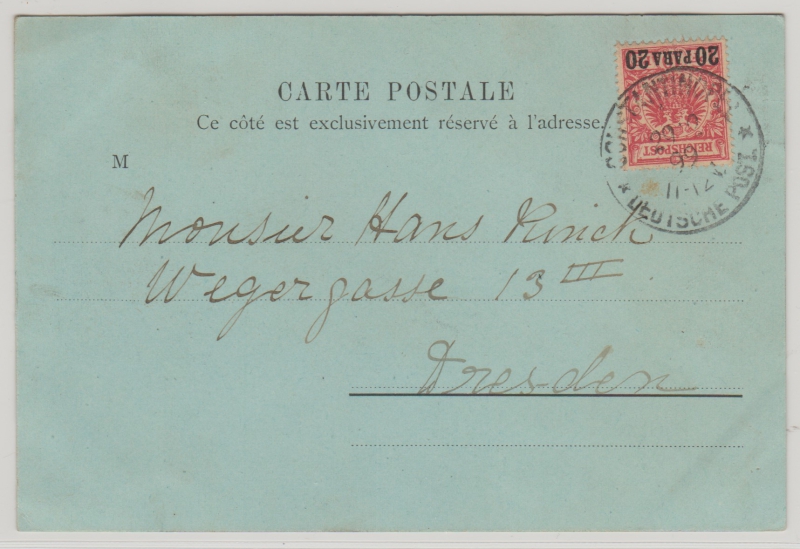 20 PARA 20
REICHSPOST
CARTE POSTALE
Ce côté est exclusivement réservé à l'adresse.
DEUTSCHE POST
11-12 V
M
Monsieur Hans
Wegergasse 13 III
Dresden